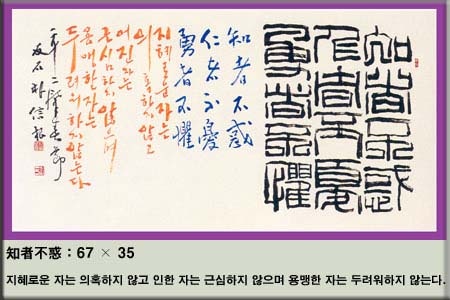 知者不惑
仁者不憂
勇者不懼
知者不惑
仁者不憂
勇者不懼
지혜로운 자는
의혹하지 않고
어진 자는
근심하지 않으며
용맹한 자는
두려워하지 않는다
知者不惑 : 67 × 35
지혜로운 자는 의혹하지 않고 인한 자는 근심하지 않으며 용맹한 자는 두려워하지 않는다.